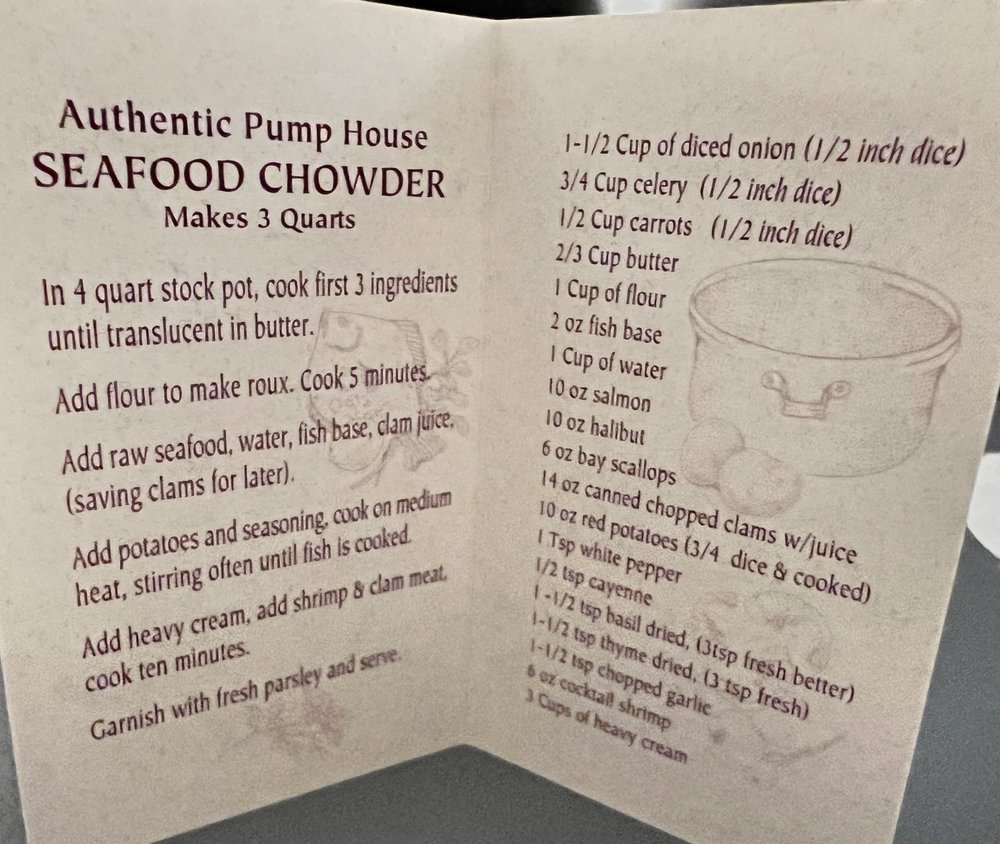 Authentic Pump House
SEAFOOD CHOWDER
Makes 3 Quarts
In 4 quart stock pot, cook first 3 ingredients
until translucent in butter.
Add flour to make roux. Cook 5 minutes.
Add raw seafood, water, fish base, clam juice,
(saving clams for later).
Add potatoes and seasoning, cook on medium
heat, stirring often until fish is cooked.
Add heavy cream, add shrimp & clam meat,
cook ten minutes.
Garnish with fresh parsley and serve.
1-1/2 Cup of diced onion (1/2 inch dice)
3/4 Cup celery (1/2 inch dice)
1/2 Cup carrots (1/2 inch dice)
2/3 Cup butter
1 Cup of flour
2 oz fish base
1 Cup of water
10 oz salmon
10 oz halibut
6 oz bay scallops
14 oz canned chopped clams w/juice
10 oz red potatoes (3/4 dice & cooked)
1 Tsp white pepper
1/2 tsp cayenne
1-1/2 tsp basil dried, (3tsp fresh better)
1-1/2 tsp thyme dried, (3 tsp fresh)
1-1/2 tsp chopped garlic
6 oz cocktail shrimp
3 Cups of heavy cream